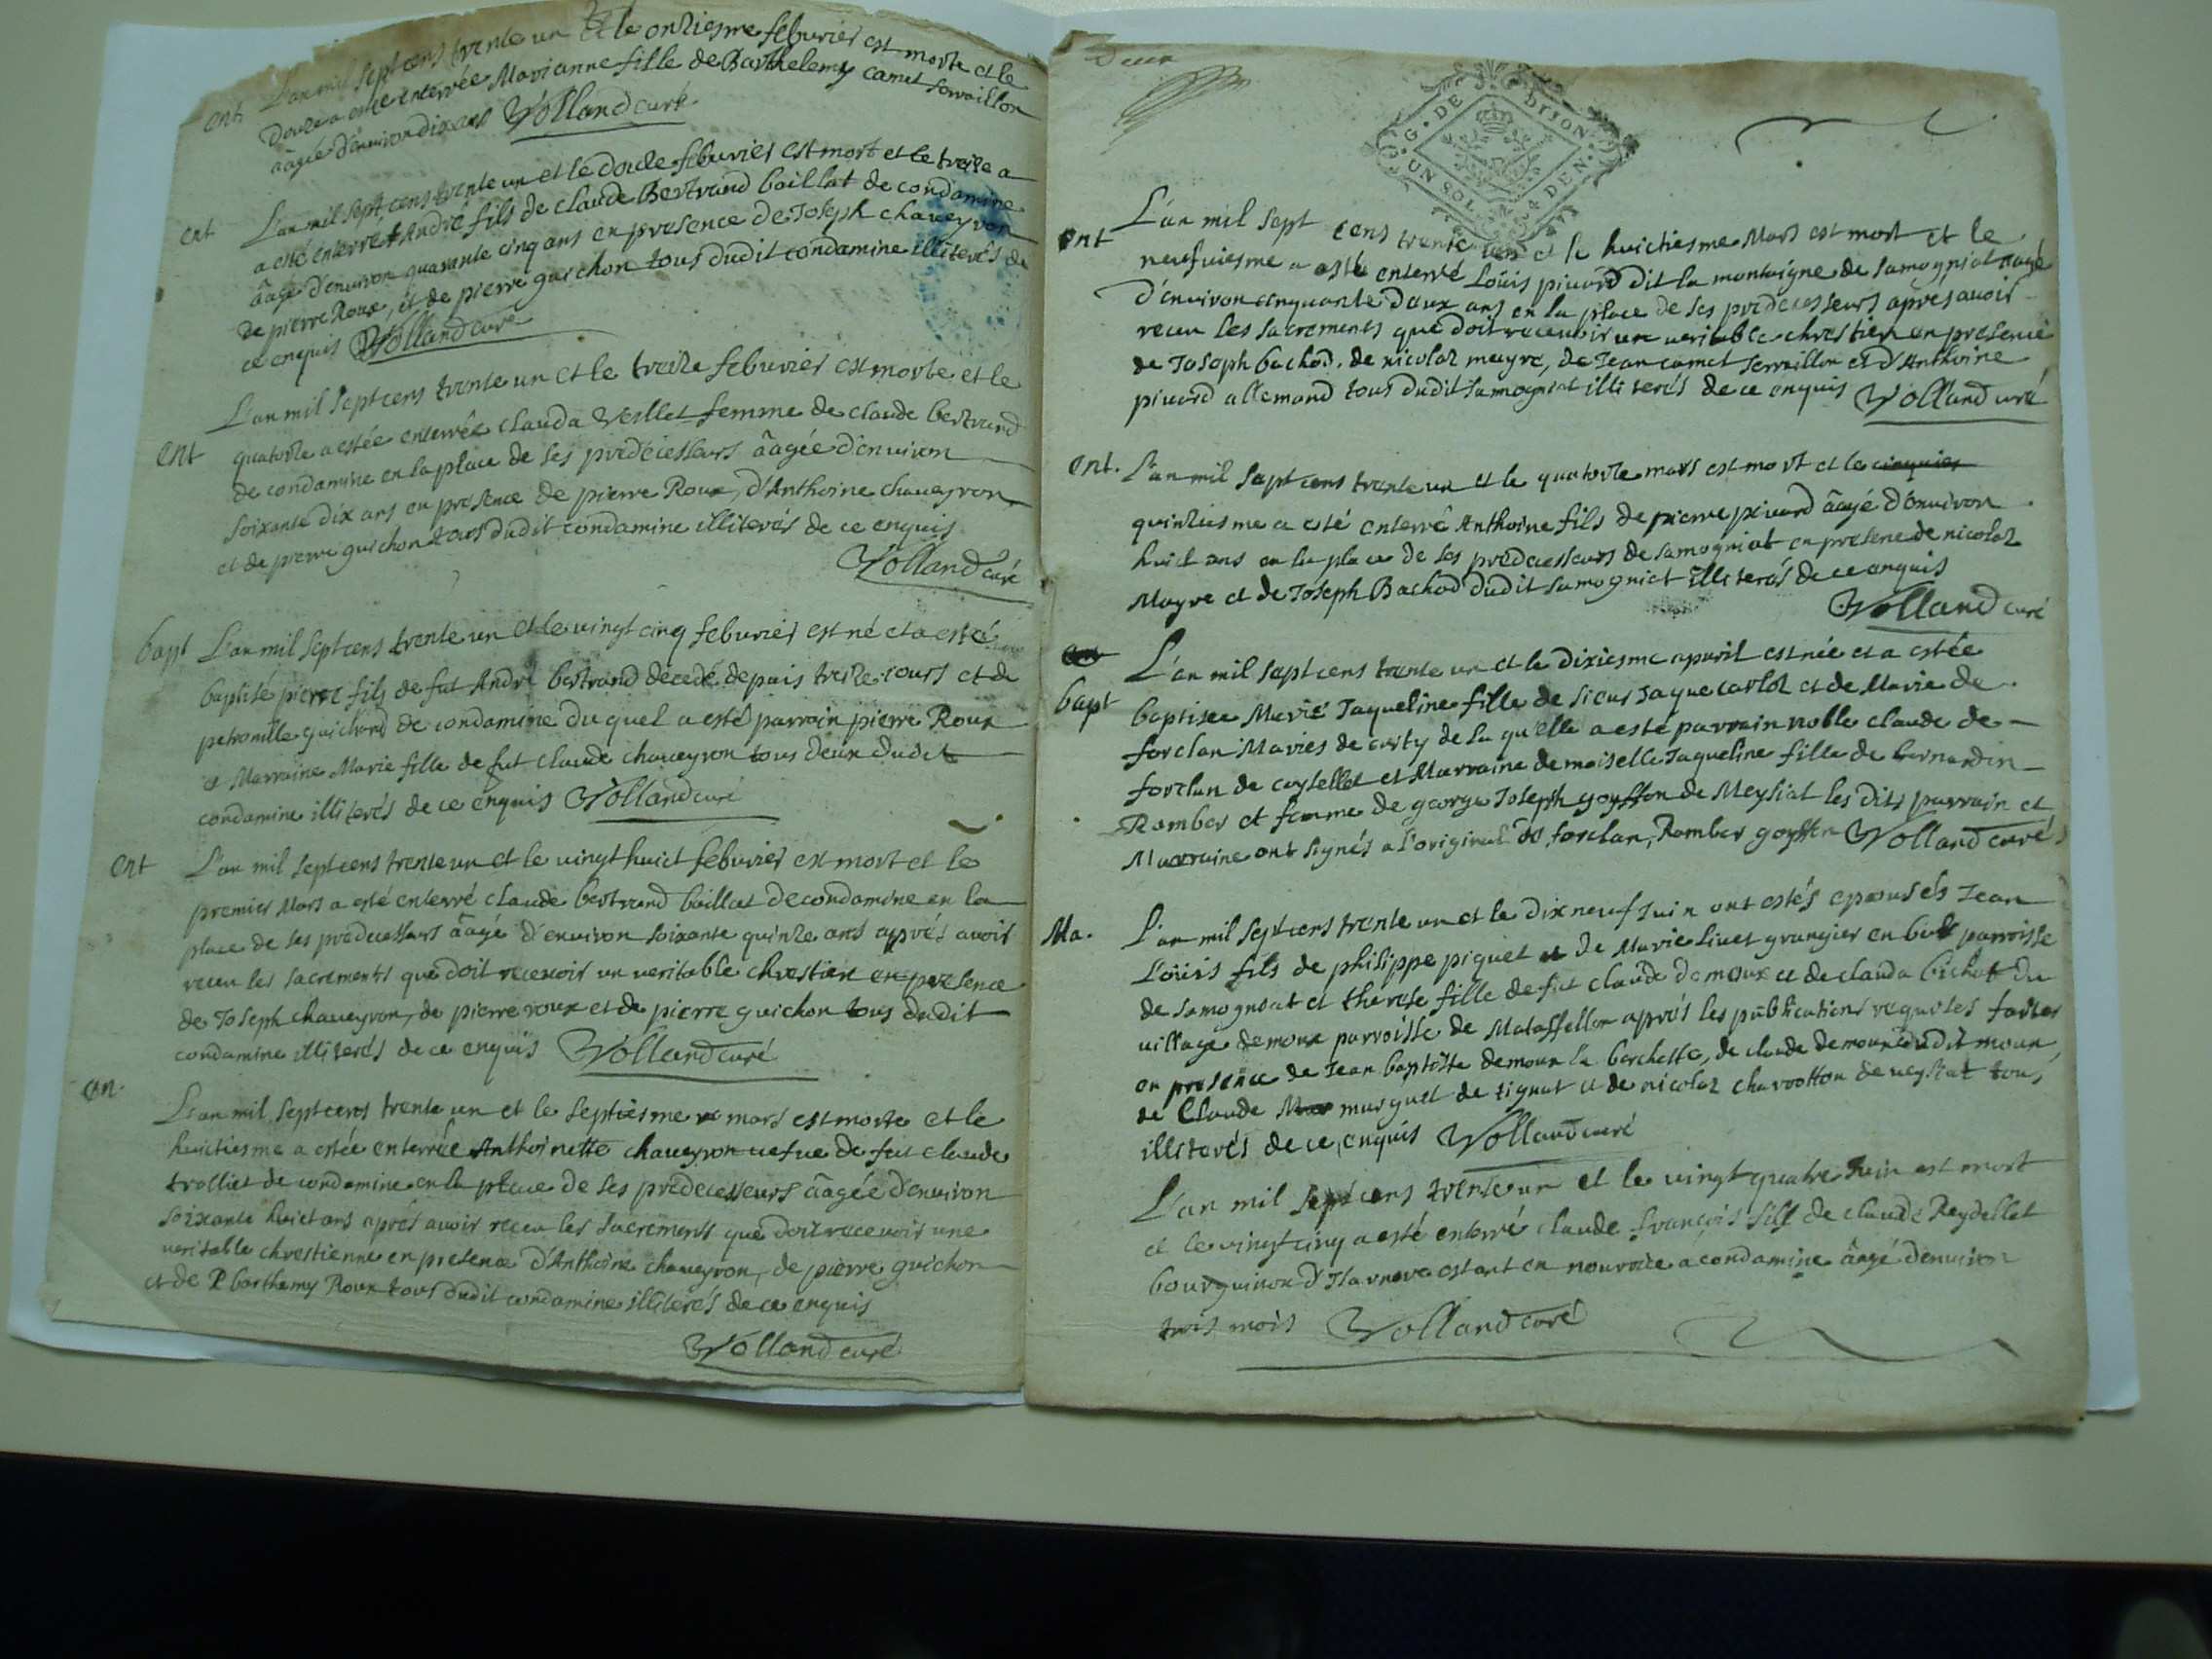 ent L'an mil sept cens trente un et le onziesme febvrier est morte et le
douze a esté enterrée Marianne fille de Barthelemy camet servaillon
aagée d'environ dix ans Volland curé
ent L'an mil sept cens trente un et le douze febvrier est mort et le treize a
a esté enterré André fils de claude Bertrand baillat de condamine
âagé d'environ quarante cinq ans en presence de Joseph chaveyron
de pierre Roux, et de pierre guichon tous dudit condamine illiterés de
ce enquis Volland curé
L'an mil sept cens trente un et le treize febvrier est morte et le
ent quatorze a estée enterrée clauda veillet femme de claude bertrand
de condamine en la place de ses predecesseurs âagée d'environ
soixante dix ans en presence de pierre Roux, d'Anthoine chaveyron,
et de pierre guichon tous dudit condamine illiterés de ce enquis
Volland curé
bapt L'an mil sept cens trente un et le vingt cinq febvrier est né et a esté
baptisé pierre fils de fut André bertrand decedé depuis treize jours et de
petronille guichond de condamine duquel a esté parrain pierre Roux
et Marraine Marie fille de fut claude chaveyron tous deux dudit
condamine illiterés de ce enquis Volland curé
ent L'an mil sept cens trente un et le vingt huict febvrier est mort et le
premier Mars a esté enterré claude bertrand baillat de condamine en la
place de ses predecesseurs âagé d'environ soixante quinze ans apprés avoir
receu les sacrements que doit recevoir un veritable chrestien en presence
de Joseph chaveyron, de pierre roux et de pierre guichon tous dudit
condamine illiterés de ce enquis Volland curé
en.
L'an mil sept cens trente un et le septiesme mars est morte et le
huictiesme a estée enterrée Anthoinette chaveyron vefve de fut claude
trolliet de condamine en la place de ses predecesseurs âagée d'environ
soixante huict ans aprés avoir receu les sacrements que doit recevoir une
veritable chrestienne en presence d'Anthoine chaveyron, de pierre guichon
et de barthemy Roux tous dudit condamine illiterés de ce enquis
Volland curé
Deux
G. DE DIJON
UN SOL 4 DEN.
L'an mil sept cens trente un et le huictiesme Mars est mort et le
ent neufviesme a esté enterré Loüis picard dit la montaigne de samogniat aagé
d'environ cinquante deux ans en la place de ses predecesseurs apres avoir
receu les sacrements que doit recevoir un veritable chrestien en presence
de Joseph bachod, de nicolaz meyre, de Jean camet servaillon et d'Anthoine
picard allemand tous dudit samogniat illiterés de ce enquis Volland curé
ent. L'an mil sept cens trente un et le quatorze mars est mort et le
quinziesme a esté enterré Anthoine fils de pierre picard âagé d'environ
huict ans en la place de ses predecesseurs de samogniat en presene de nicolaz
Mayre et de Joseph Bachod dudit samogniat illiterés de ce enquis
Volland curé
L'an mil sept cens trente un et le dixiesme apvril est née et a estée
bapt baptisée Marie Jaqueline fille de sieur Jaque carloz et de Marie de
forclan Mariés de certy de la qu'elle a esté parrain noble claude de
forclan de coysellet et Marraine demoiselle Jaqueline fille de bernardin
Rombor et femme de george Joseph goyffon de Meysiat les dits parrain et
Marraine ont signés a l'original de forclan, Rombor goyffon Volland curé
Ma. L'an mil sept cens trente un et le dix neuf Juin ont estés epousés Jean
Loüis fils de philippe piquet et de Marie livet grangier en parroisse
de samogniat et therese fille de fut claude de moux et de clauda bichat du
village demoux parroisse de Mataffellon aprés les publications requises faites
en presence de Jean baptiste demoux la berchette, de claude demoux dudit moux,
de Claude murguet de tignat et de nicolaz chavotton de veysiat tous
illiterés de ce enquis Volland curé
L'an mil sept cens trente un et le vingt quatre Juin est mort
et le vingt cinq a esté enterré claude françois fils de claude Reydellet
bourguinon d'Izernore estant en nourrice a condamine âagé d'environ
trois mois Volland curé